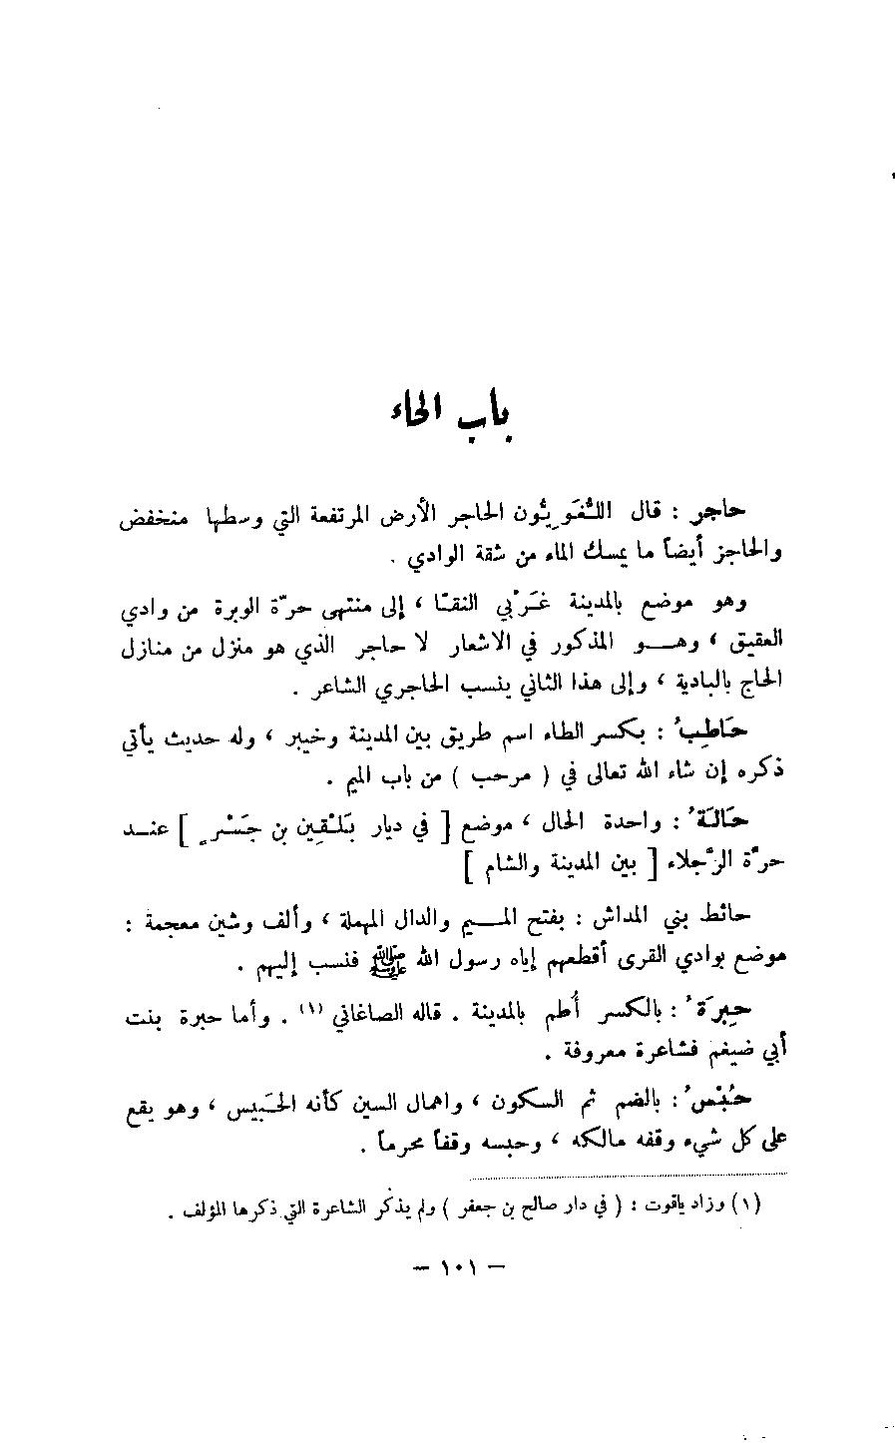 باب الحاء
حاجر : قال اللُّغَوِيُّون الحاجر الأرض المرتفعة التي وسطها منخفض
والحاجز أيضاً ما يمسك الماء من شقة الوادي .
وهو موضع بالمدينة غَرْبي النقا ، إلى منتهى حرّة الوبرة من وادي
العقيق ، وهو المذكور في الاشعار لا حاجر الذي هو منزل من منازل
الحاج بالبادية ، وإلى هذا الثاني ينسب الحاجري الشاعر .
حَاطِبُ : بكسر الطاء اسم طريق بين المدينة وخيبر ، وله حديث يأتي
ذكره إن شاء الله تعالى في ( مرحب ) من باب الميم .
حَالَةُ : واحدة الحال ، موضع [ في ديار بَلْقِين بن جَسْرٍ ] عند
حرّة الرَّجلاء [ بين المدينة والشام ]
حائط بني المداش : بفتح الميم والدال المهملة ، وألف وشين معجمة :
موضع بوادي القرى أقطعهم إياه رسول الله ﷺ فنسب إليهم .
حِبرَةُ : بالكسر أُطم بالمدينة . قاله الصاغاني (١) . وأما حبرة بنت
أبي ضيغم فشاعرة معروفة .
حُبْسُ : بالضم ثم السكون ، واهمال السين كأنه الحَبِيس ، وهو يقع
على كل شيء وقفه مالكه ، وحبسه وقفاً محرماً .
(١) وزاد ياقوت : ( في دار صالح بن جعفر ) ولم يذكر الشاعرة التي ذكرها المؤلف .
– ١٠١ –